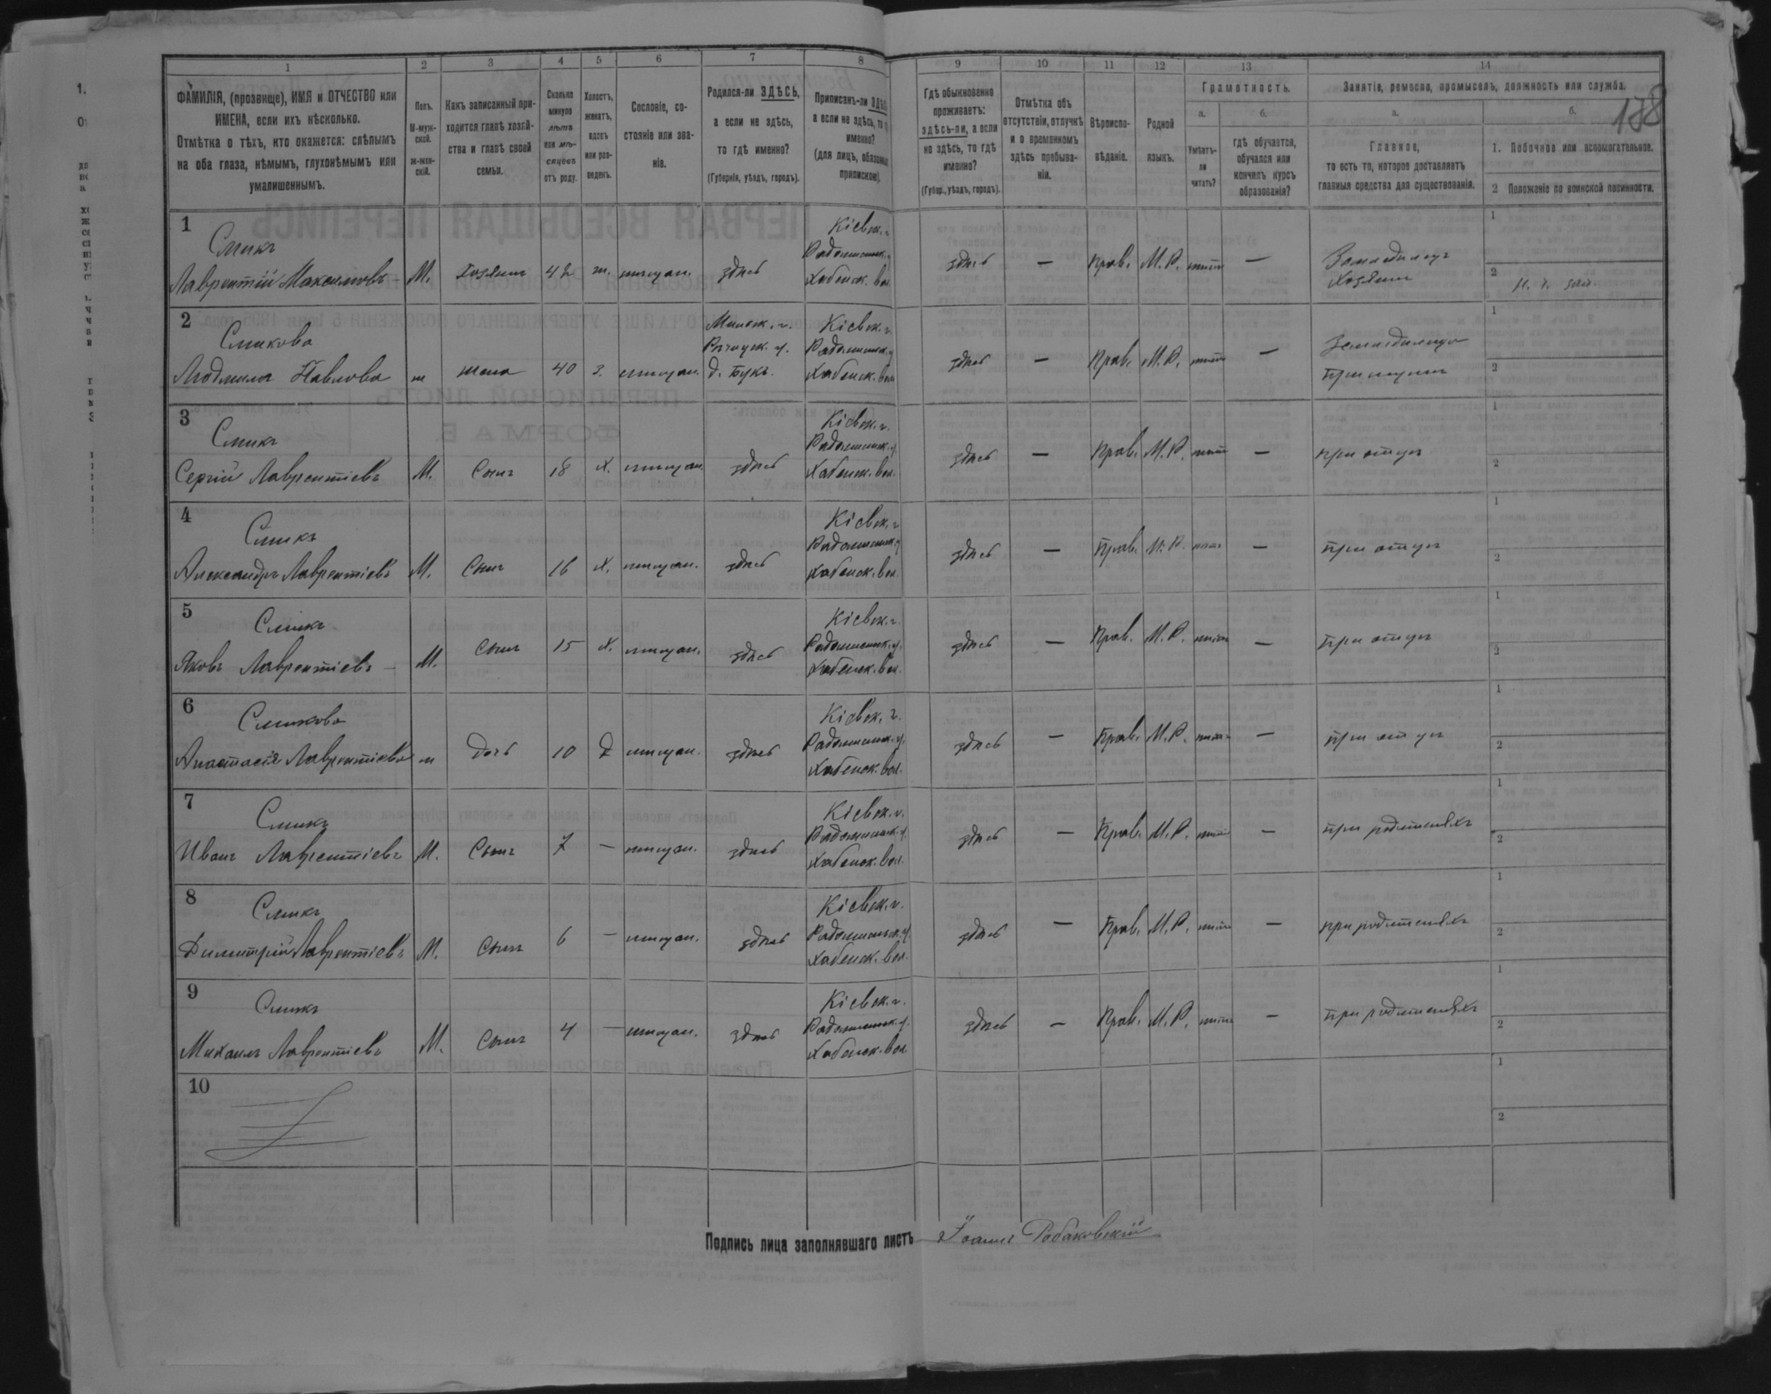 138
1 2 3 4 5 6 7 8 9 10 11 12 13 14
ФАМИЛІЯ, (прозвище), ИМЯ и ОТЧЕСТВО или
ИМЕНА, если ихъ нѣсколько.
Отмѣтка о тѣхъ, кто окажется: слѣпымъ
на оба глаза, нѣмымъ, глухонѣмымъ или
умалишеннымъ.
Полъ.
М-муж-
ской.
Ж-жен-
скій.
Какъ записанный при-
ходится главѣ хозяй-
ства и главѣ своей
семьи.
Сколько
минуло
лѣтъ
или мѣ-
сяцевъ
отъ роду.
Холостъ,
женатъ,
вдовъ
или раз-
веденъ.
Сословіе, со-
стояніе или зва-
ніе.
Родился-ли ЗДѢСЬ,
а если не здѣсь,
то гдѣ именно?
(Губернія, уѣздъ, городъ).
Приписанъ-ли ЗДѢ
а если не здѣсь, то
именно?
(для лицъ, обязанных
припискою).
Гдѣ обыкновенно
проживаетъ:
здѣсь-ли, а если
не здѣсь, то гдѣ
именно?
(Губер., уѣздъ, городъ).
Отмѣтка объ
отсутствіи, отлучкѣ
и о временномъ
здѣсь пребыва-
ніи.
Вѣроиспо-
вѣданіе.
Родной
языкъ.
Грамотность.
а.
Умѣетъ-
ли
читать?
б.
гдѣ обучается,
обучался или
кончилъ курсъ
образованія?
Занятіе, ремесло, промыселъ, должность или служба.
а.
Главное,
то есть то, которое доставляетъ
главныя средства для существованія.
б.
1. Побочное или вспомогательное.
2 Положеніе по воинской повинности.
1
Смикъ Кіевск. г.
Радомышск. у.
Лаврентій Максимовъ М. Хозяинъ 42 ж. здѣсь Хабенск. вол. здѣсь — Прав. М.Р. — Земледѣлецъ
Хозяинъ
1
2
2
Смикова Минск. г. Кіевск. г.
Рѣчицк. у. Радомышск. у.
Людмила Павлова ж жена 40 з. д. Букъ. Хабенск. вол. здѣсь — Прав. М.Р. — Земледѣлица
При мужѣ
1
2
3
Смикъ Кіевск. г.
Радомышск. у.
Сергій Лаврентіевъ М. Сынъ 18 Х. здѣсь Хабенск. вол. здѣсь — Прав. М.Р. — при отцѣ
1
2
4
Смикъ Кіевск. г.
Радомышск. у.
Александръ Лаврентіевъ М. Сынъ 16 Х. здѣсь Хабенск. вол. здѣсь — Прав. М.Р. — при отцѣ
1
2
5
Смикъ Кіевск. г.
Радомышск. у.
Яковъ Лаврентіевъ М. Сынъ 15 Х. здѣсь Хабенск. вол. здѣсь — Прав. М.Р. — при отцѣ
1
2
6
Смикова Кіевск. г.
Радомышск. у.
Анастасія Лаврентіева ж Дочь 10 Д здѣсь Хабенск. вол. здѣсь — Прав. М.Р. — при отцѣ
1
2
7
Смикъ Кіевск. г.
Радомышск. у.
Иванъ Лаврентіевъ М. Сынъ 7 — здѣсь Хабенск. вол. здѣсь — Прав. М.Р. — при родителяхъ
1
2
8
Смикъ Кіевск. г.
Радомышск. у.
Димитрій Лаврентіевъ М. Сынъ 6 — здѣсь Хабенск. вол. здѣсь — Прав. М.Р. — при родителяхъ
1
2
9
Смикъ Кіевск. г.
Радомышск. у.
Михаилъ Лаврентіевъ М. Сынъ 4 — здѣсь Хабенск. вол. здѣсь — Прав. М.Р. — при родителяхъ
1
2
10
1
2
Подпись лица заполнявшаго листъ Іоаннъ Рабаковскій